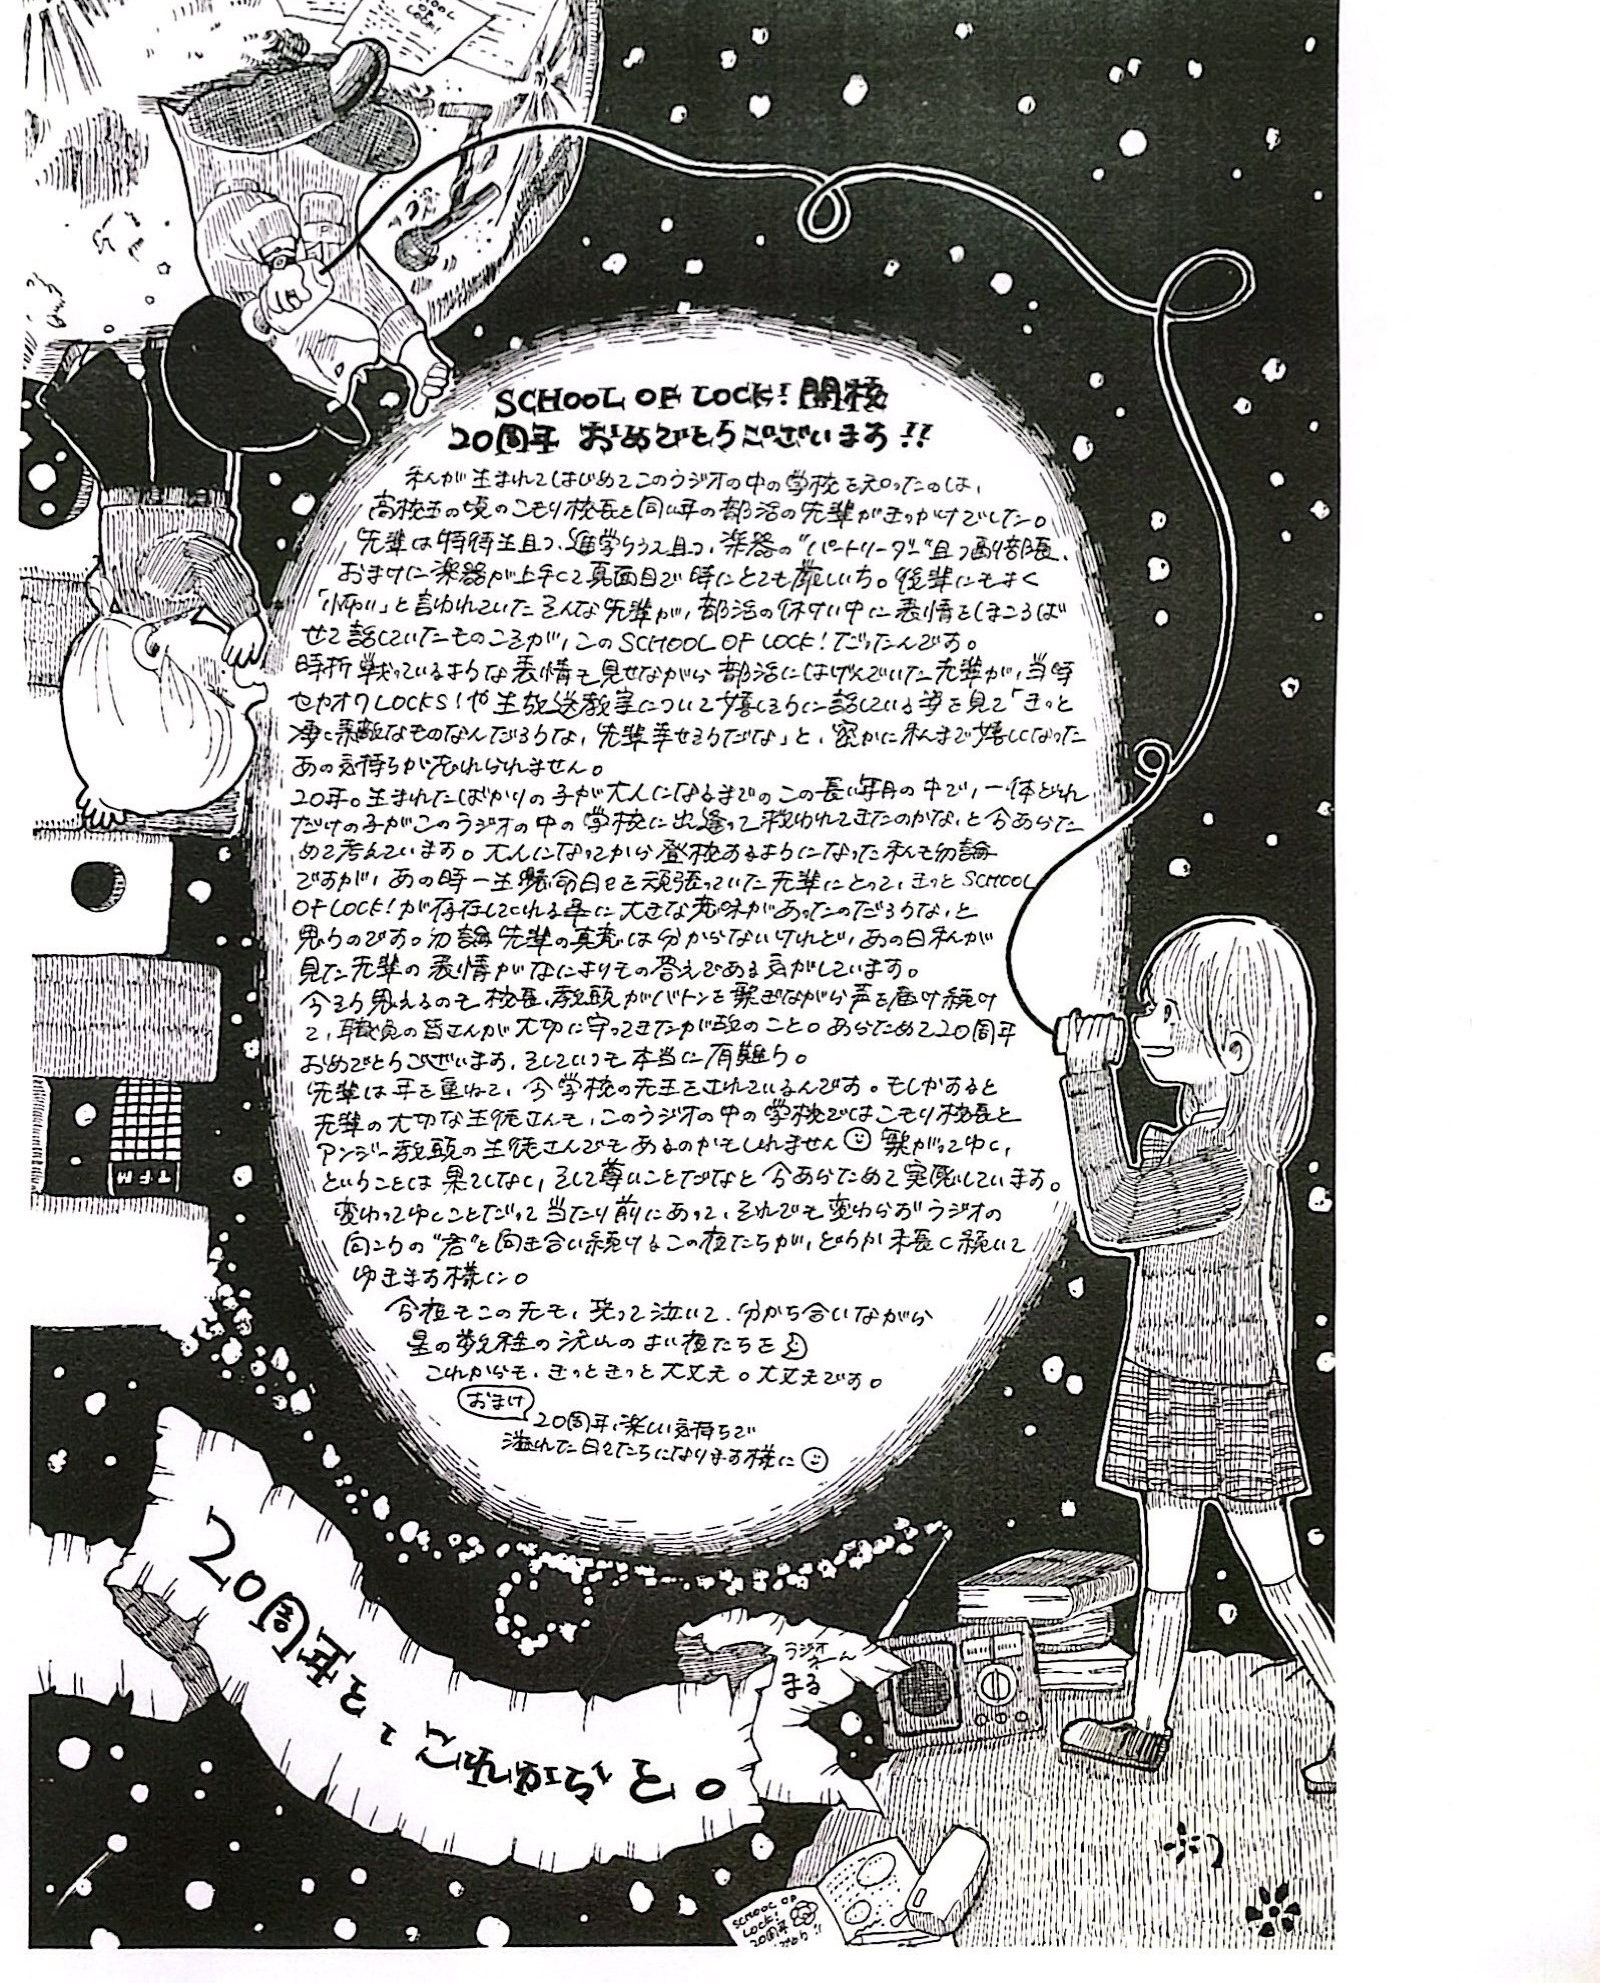 SCHOOL OF LOCK!
SCHOOL OF LOCK! 開校
20周年 おめでとうございます!!
私が生まれてはじめてこのラジオの中の学校を知ったのは、
高校生の頃のこもり校長と同い年の部活の先輩がきっかけでした。
先輩は特待生且つ、進学クラス且つ、楽器の"パートリーダー"且つ副部長、
おまけに楽器が上手くて真面目で時にとても厳しい方。後輩にもよく
「怖い」と言われていたそんな先輩が、部活の休けい中に表情をほころば
せて話していたものこそが、このSCHOOL OF LOCK!だったんです。
時折戦っているような表情も見せながら部活にはげんでいた先輩が、当時
セカオワLOCKS!や生放送教室について嬉しそうに話している姿を見て「きっと
凄く素敵なものなんだろうな、先輩幸せそうだな」と、密かに私まで嬉しくなった
あの気持ちが忘れられません。
20年。生まれたばかりの子が大人になるまでのこの長い年月の中で、一体どれ
だけの子がこのラジオの中の学校に出逢って救われてきたのかな、と今あらた
めて考えています。大人になってから登校するようになった私も勿論
ですが、あの時一生懸命日々を頑張っていた先輩にとって、きっとSCHOOL
OF LOCK!が存在してくれる事に大きな意味があったのだろうな、と
思うのです。勿論先輩の真意は分からないけれど、あの日私が
見た先輩の表情がなによりもの答えである気がしています。
今そう思えるのも校長、教頭がバトンを繋ぎながら声を届け続け
て、職員の皆さんが大切に守ってきたが故のこと。あらためて20周年
おめでとうございます、そしていつも本当に有難う。
先輩は年を重ねて、今学校の先生をされているんです。もしかすると
先輩の大切な生徒さんも、このラジオの中の学校ではこもり校長と
アンジー教頭の生徒さんでもあるのかもしれません 繋がってゆく、
ということは果てしなく、そして尊いことだなと今あらためて実感しています。
変わってゆくことだって当たり前にあって、それでも変わらずラジオの
向こうの"君"と向き合い続けるこの夜たちが、どうか末長く続いて
ゆきます様に。
今夜もこの先も、笑って泣いて、分かち合いながら
星の数程の沢山のよい夜たちを
これからも、きっときっと大丈夫。大丈夫です。
おまけ
20周年、楽しい気持ちで
溢れた日々たちになります様に
TFM
20周年を、これからも。
ラジオネーム
まる
SCHOOL OF
LOCK!
20周年